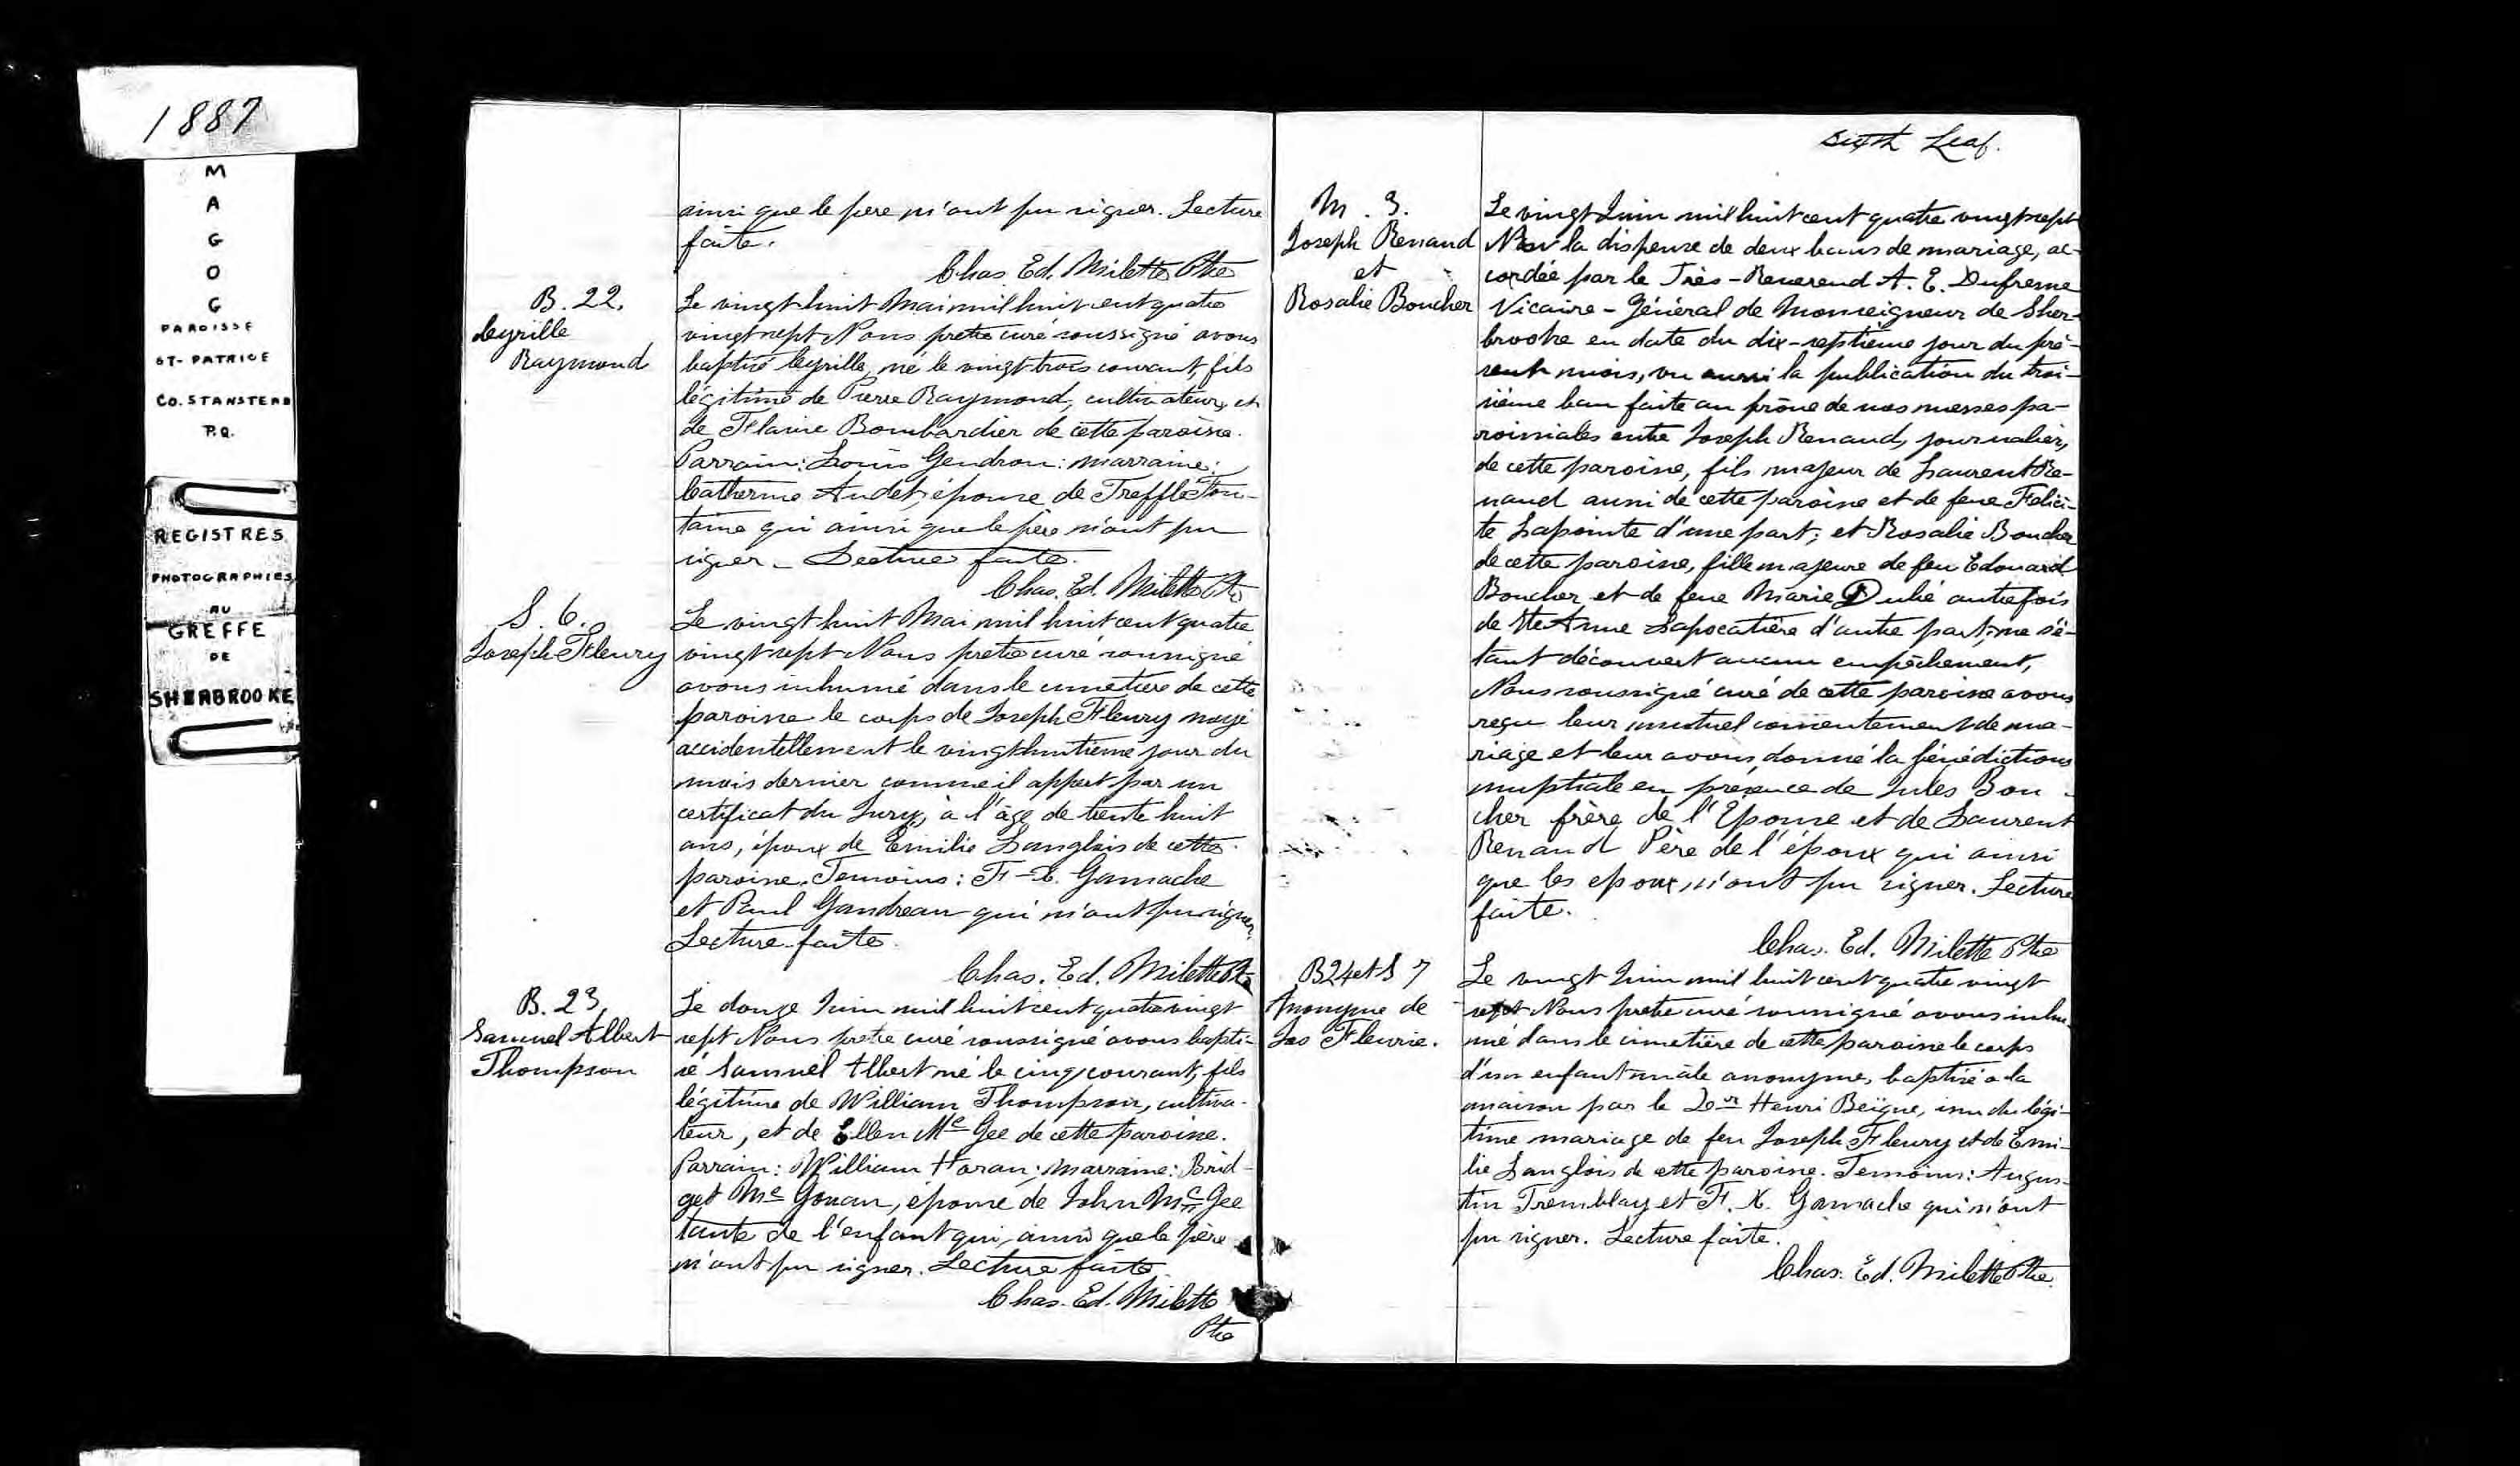 1887
M
A
G
O
G
PAROISSE
ST-PATRICE
CO. STANSTEAD
P.Q.
REGISTRES
PHOTOGRAPHIES
AU
GREFFE
DE
SHERBROOKE
ainsi que le père n'ont pu signer. Lecture
faite.
Chas. Ed. Milette Ptre
B. 22.
Cyrille
Raymond
Le vingt huit Mai mil huit cent quatre
vingt sept Nous prêtre curé soussigné avons
baptisé Cyrille, né le vingt trois courant, fils
légitime de Pierre Raymond, cultivateur, et
de Flavie Bombardier de cette paroisse.
Parrain: Louis Gendron: marraine:
Catherine Audet, épouse de Treffle Fon-
taine qui ainsi que le père n'ont pu
signer _ Lecture faite.
Chas. Ed. Milette Ptre
S. 6.
Joseph Fleury
Le vingt huit Mai mil huit cent quatre
vingt sept Nous prêtre curé soussigné
avons inhumé dans le cimetière de cette
paroisse le corps de Joseph Fleury noyé
accidentellement le vingt huitième jour du
mois dernier comme il appert par un
certificat du Jury, à l'âge de trente huit
ans, époux de Emilie Langlois de cette
paroisse. Temoins: F-X. Gamache
et Paul Gaudreau qui n'ont pu signer.
Lecture faite.
Chas. Ed. Milette Ptre
B. 23,
Samuel Albert
Thompson
Le douze Juin mil huit cent quatre vingt
sept Nous prêtre curé soussigné avons bapti-
sé Samuel Albert né le cinq courant, fils
légitime de William Thompson, cultiva-
teur, et de Ellen Mc Gee de cette paroisse.
Parrain: William Horan; marraine: Brid-
get Mc Gowan, épouse de John Mc Gee
tante de l'enfant qui, ainsi que le père
n'ont pu signer. Lecture faite.
Chas. Ed. Milette
Ptre
Sixth Leaf.
M. 3.
Joseph Renaud
et
Rosalie Boucher
Le vingt Juin mil huit cent quatre vingt sept
Vu la dispense de deux bans de mariage, ac-
cordée par le Très-Reverend A. E. Dufresne
Vicaire-Général de Monseigneur de Sher-
brooke en date du dix-septième jour du pré-
sent mois, vu aussi la publication du troi-
sième ban faite au prône de nos messes pa-
roissiales entre Joseph Renaud, journalier,
de cette paroisse, fils majeur de Laurent Re-
naud aussi de cette paroisse et de feue Felici-
te Lapointe d'une part; et Rosalie Boucher
de cette paroisse, fille majeure de feu Edouard
Boucher et de feue Marie Dubé autrefois
de Ste Anne Lapocatière d'autre part; ne s'é-
tant découvert aucun empêchement,
Nous soussigné curé de cette paroisse avons
reçu leur mutuel consentement de ma-
riage et leur avons donné la bénédiction
nuptiale en présence de Jules Bou-
cher frère de l'Epouse et de Laurent
Renaud Père de l'époux qui ainsi
que les epoux, n'ont pu signer. Lecture
faite.
Chas. Ed. Milette Ptre
B24 et S 7
Anonyme de
Jos Fleurie.
Le vingt Juin mil huit cent quatre vingt
sept Nous prêtre curé soussigné avons inhu-
mé dans le cimetière de cette paroisse le corps
d'un enfant mâle anonyme, baptisé a la
maison par le Dr Henri Beïque, issu du légi-
time mariage de feu Joseph Fleury et de Emi-
lie Langlois de cette paroisse. Temoins: Augus-
tin Tremblay et F. X. Gamache qui n'ont
pu signer. Lecture faite.
Chas. Ed. Milette Ptre.